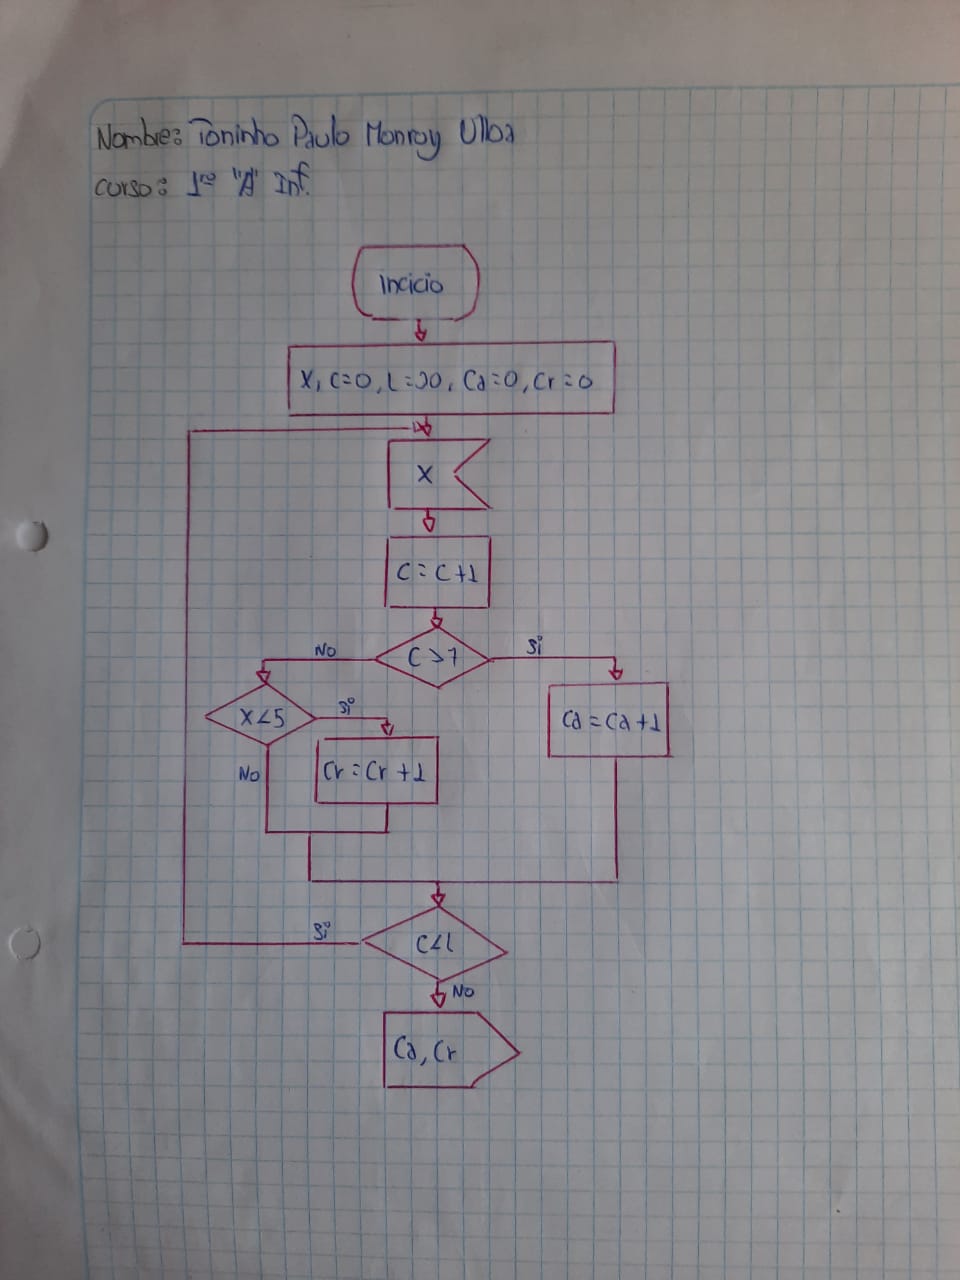 Nombre: Toninho Paulo Monroy Ulloa
curso: 1ro "A" Inf.
Incicio
X, C=0, L=30, Ca=0, Cr=0
X
C=C+1
C>7
No
Si
X<5
Si
Ca=Ca+1
No
Cr=Cr+1
C<L
Si
No
Ca, Cr